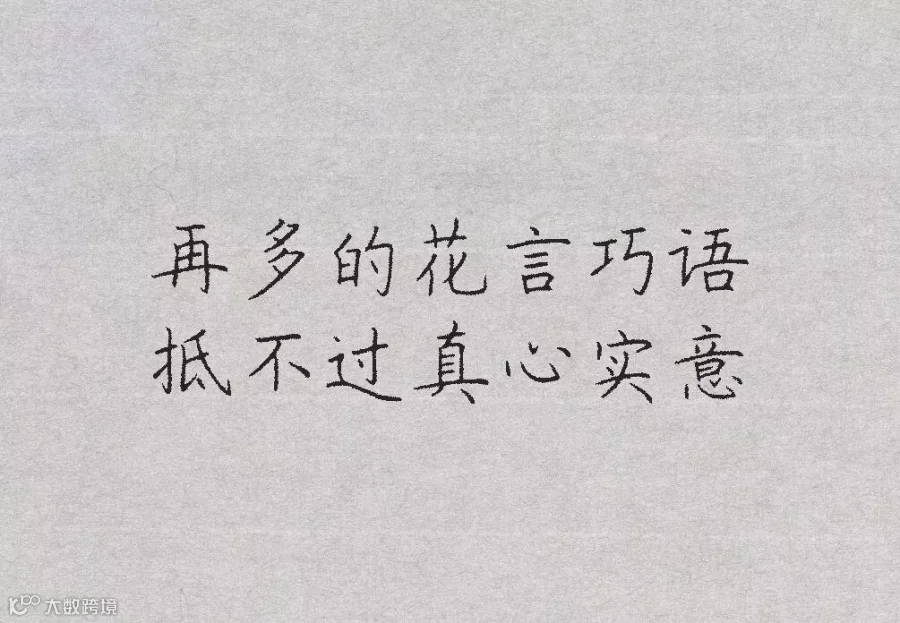 再多的花言巧语
抵不过真心实意
大数跨境